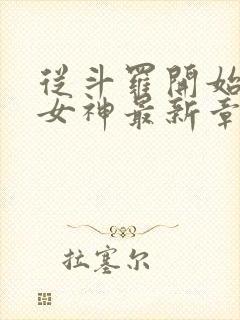 從斗羅開始
女神最新章
拉塞尔